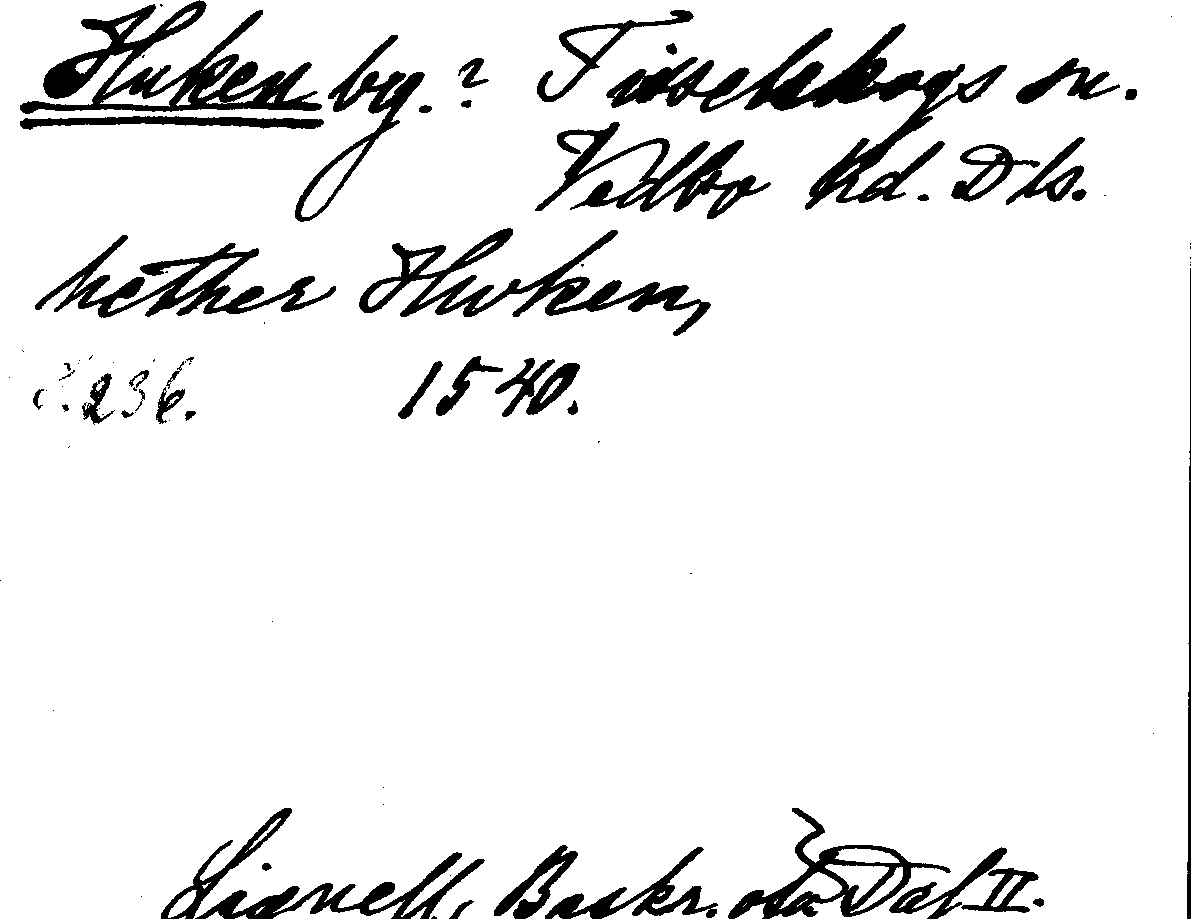 Huken by.? Tisselskogs sn.
Vedbo hd. Dls.
nether Hwken,
S. 236. 1540.
Lignell, Beskr. öfv. Dal II.